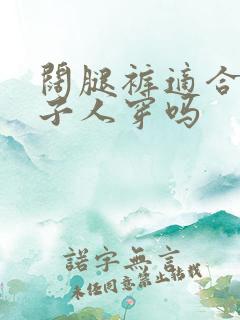 阔腿裤适合
子人穿吗
諾字無言
未经同意禁止转载